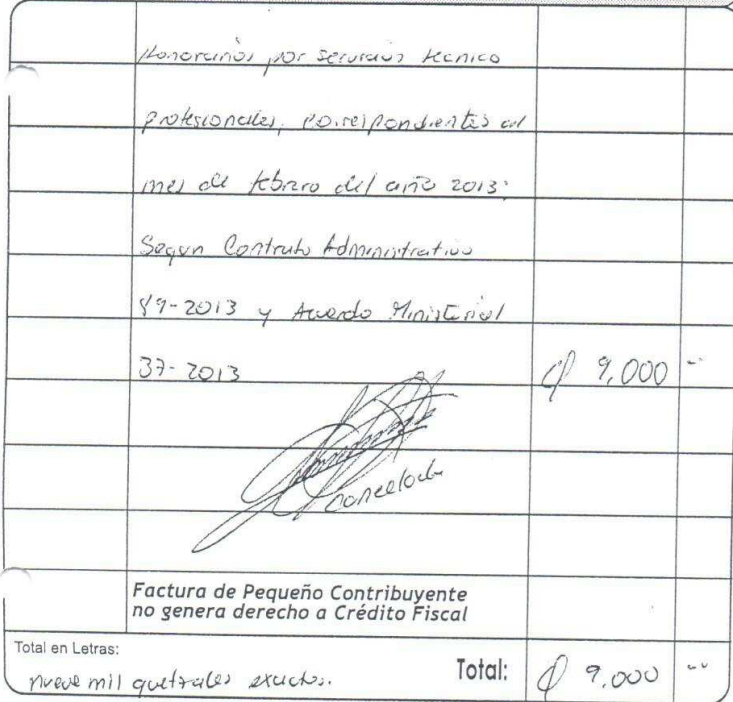 Honorarios por servicios técnico
profesionales, correspondientes al
mes de febrero del año 2013.
Segun Contrato Administrativo
89-2013 y Acuerdo Ministerial
37-2013 Q 9,000 --
cancelado
Factura de Pequeño Contribuyente
no genera derecho a Crédito Fiscal
Total en Letras:
nueve mil quetzales exactos. Total: Q 9,000 --